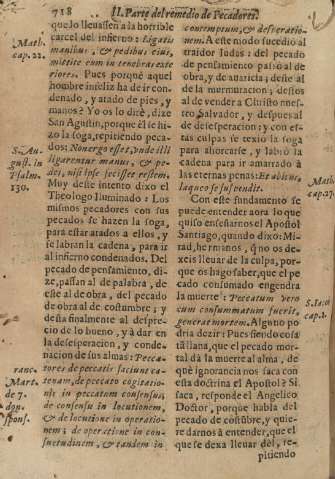 718
II. Parte del remedio de Pecadores.
que lo lleuassen a la horrible
carcel del infierno: Ligatis
manibus, & pedibus eius,
mittite eum in tenebras exte
riores. Pues porquè aquel
hombre infeliz ha de ir con-
denado, y atado de pies, y
manos? Yo os lo dirè, dize
San Agustin, porque èl se hi-
zo la soga, repitiendo peca-
dos: Non ergo esset, unde illi
ligarentur manus, & pe-
des, nisi ipse fecisset restem.
Muy deste intento dixo el
Theologo Iluminado: Los
mismos pecadores con sus
pecados se hazen la soga,
para estar atados a ellos, y
se labran la cadena, para ir
al infierno condenados. Del
pecado de pensamiento, di-
ze, passan al de palabra, de
este al de obra, del pecado
de obra al de costumbre; y
desta finalmente al despre-
cio de lo bueno, y à dar en
la desesperacion, y conde-
nacion de sus almas: Pecca-
tores de peccatis faciunt ca-
tenam, de peccato cogitatio-
nis in peccatum consensus,
de consensu in locutionem,
& de locutione in operatio-
nem; de operatione in con-
suetudinem, & tandem in
Math.
cap. 22.
S. Au-
gust. in
Psalm.
130.
ranc.
Mart.
de 7.
don.
Spons.
contemptum, & desperatio-
nem. A este modo sucediò al
traidor Iudas: del pecado
de pensamiento passò al de
obra, y de auaricia; deste al
de la murmuracion; destos
al de vender a Christo nues-
tro Saluador, y despues al
de desesperacion; y con es-
tas culpas se texiò la soga
para ahorcarse, y labrò la
cadena para ir amarrado à
las eternas penas: Et abiens,
laqueo se suspendit.
Con este fundamento se
puede entender aora lo que
quiso enseñarnos el Apostol
Santiago, quando dixo: Mi-
rad, hermanos, q̃ no os de-
xeis lleuar de la culpa, por-
que os hago saber, que el pe
cado consumado engendra
la muerte: Peccatum vero
cum consummatum fuerit,
generat mortem. Alguno po
dria dezir: Pues siendo cosa
tã llana, que el pecado mor-
tal dà la muerte al alma, de
què ignorancia nos saca con
esta doctrina el Apostol? Si
saca, responde el Angelico
Doctor, porque habla del
pecado de costũbre, y quie-
re darnos à entender, que el
que se dexa lleuar dèl, re-
pitiendo
Math.
cap. 27.
S. Iaco
cap. 1.